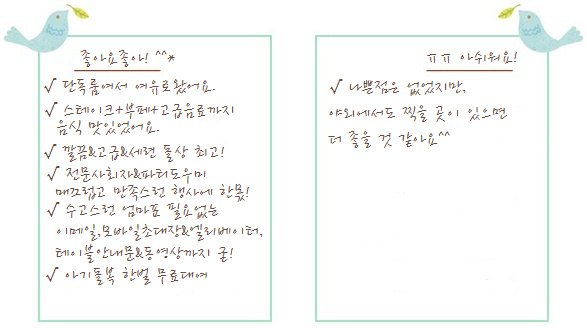 좋아요좋아! ^^*
√ 단독룸여서 여유로왔어요.
√ 스테이크+부페+고급음료까지
음식 맛있었어요.
√ 깔끔&고급&세련 돌상 최고!
√ 전문사회자&파티도우미
매끄럽고 만족스런 행사에 한몫!
√ 수고스런 엄마표 필요없는
이메일,모바일초대장&엘리베이터,
테이블안내문&동영상까지 굳!
√ 아기돌복 한벌 무료대여
ㅠㅠ 아쉬워요!
√ 나쁜점은 없었지만,
야외에서도 찍을 곳이 있으면
더 좋을 것 같아요^^